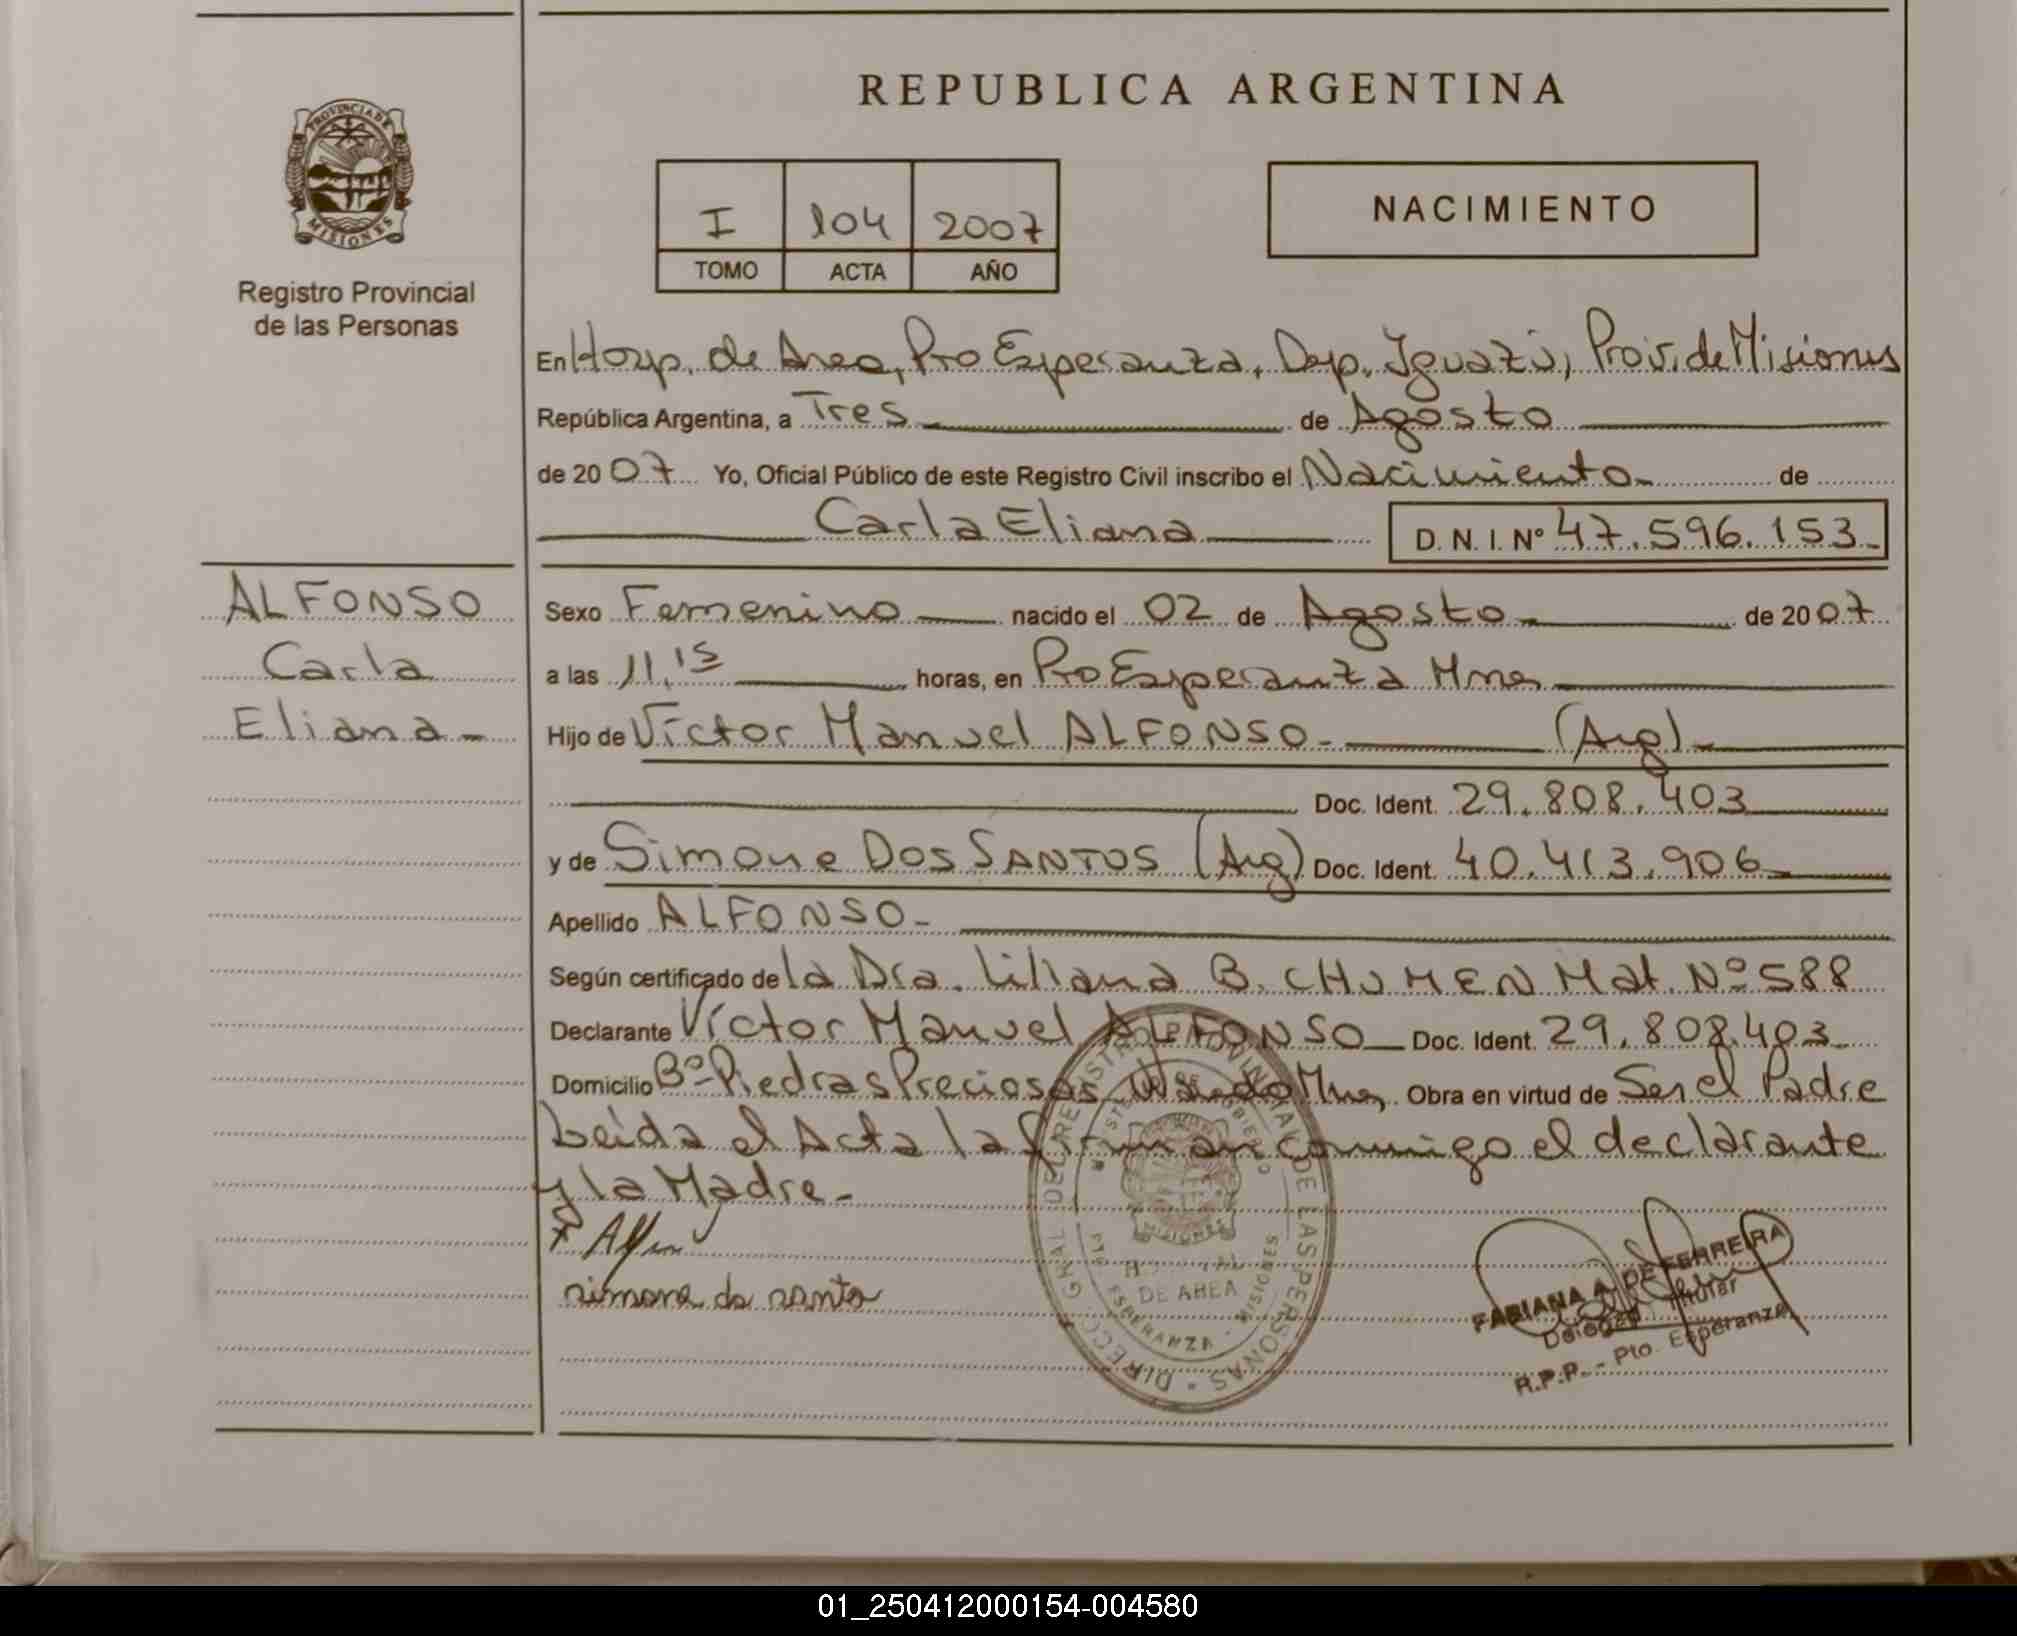 REPUBLICA ARGENTINA
PROVINCIA DE MISIONES
Registro Provincial
de las Personas
I 104 2007
TOMO ACTA AÑO
NACIMIENTO
En Hosp. de Area, Pto Esperanza, Dep. Iguazú, Prov. de Misiones
República Argentina, a Tres de Agosto
de 2007 Yo, Oficial Público de este Registro Civil inscribo el Nacimiento de
Carla Eliana D. N. I. Nº 47.596.153
ALFONSO
Carla
Eliana
Sexo Femenino nacido el 02 de Agosto de 2007
a las 11,15 horas, en Pto Esperanza Mnes
Hijo de Víctor Manuel ALFONSO (Arg)
Doc. Ident. 29.808.403
y de Simone DOS SANTOS (Arg) Doc. Ident. 40.413.906
Apellido ALFONSO
Según certificado de la Dra. Liliana B. CHUMEN Mat. Nº 588
Declarante Víctor Manuel ALFONSO Doc. Ident. 29.808.403
Domicilio Bº Piedras Preciosas, Wanda Mnes Obra en virtud de Ser el Padre
Leída el Acta la firman conmigo el declarante
y la Madre
simone do santo
DIRECC. GRAL DEL REGISTRO PROVINCIAL DE LAS PERSONAS
HOSPITAL
DE AREA
PTO ESPERANZA - MISIONES
FABIANA A. DE FERREIRA
Delegada Titular
R.P.P. - Pto. Esperanza
01_250412000154-004580